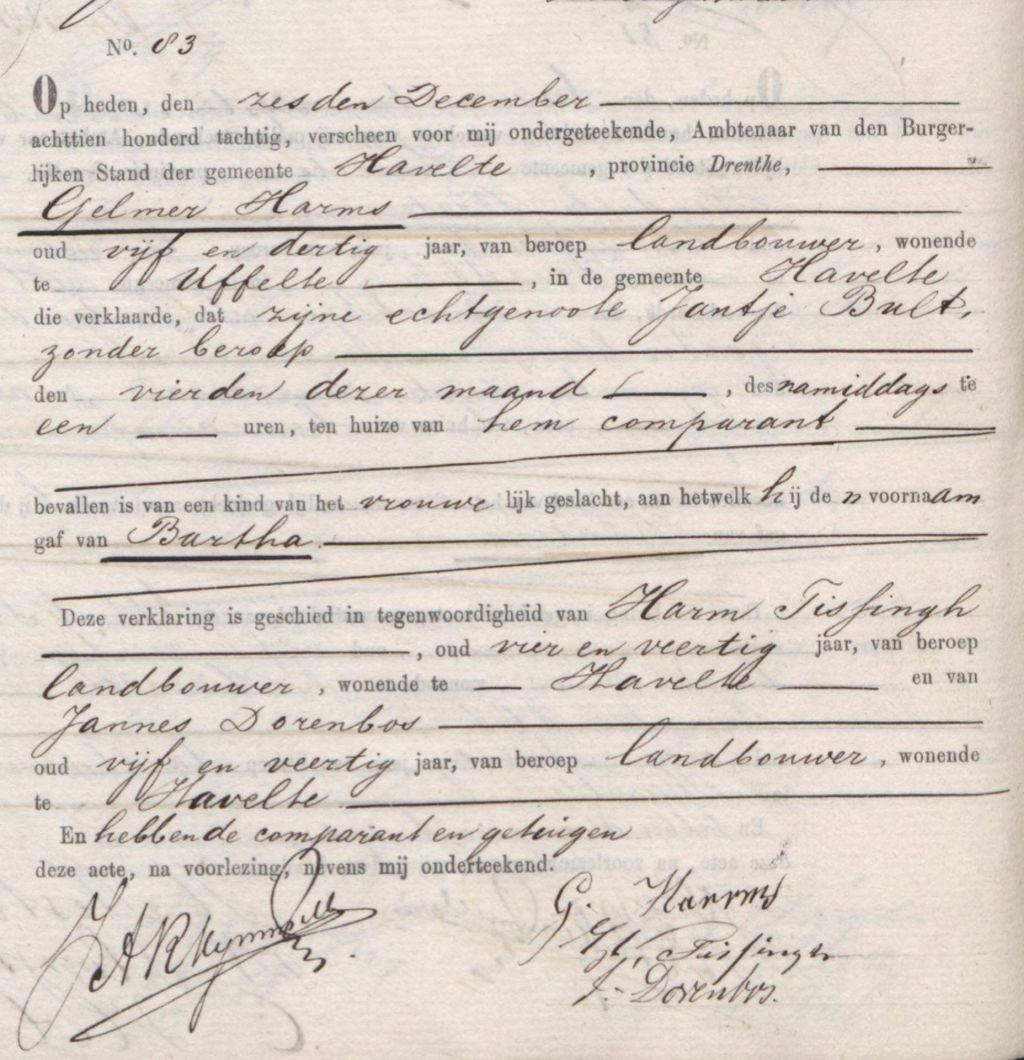 No. 83
Op heden, den zesden December
achttien honderd tachtig, verscheen voor mij ondergeteekende, Ambtenaar van den Burger-
lijken Stand der gemeente Havelte, provincie Drenthe,
Gelmer Harms
oud vijf en dertig jaar, van beroep landbouwer, wonende
te Uffelte, in de gemeente Havelte
die verklaarde, dat zijne echtgenoote Jantje Bult,
zonder beroep
den vierden dezer maand, des namiddags te
een uren, ten huize van hem comparant
bevallen is van een kind van het vrouwelijk geslacht, aan hetwelk hij de n voornaam
gaf van Bartha.
Deze verklaring is geschied in tegenwoordigheid van Harm Tissingh
, oud vier en veertig jaar, van beroep
landbouwer, wonende te Havelte en van
Jannes Dorenbos
oud vijf en veertig jaar, van beroep landbouwer, wonende
te Havelte
En hebbende comparant en getuigen
deze acte, na voorlezing, nevens mij onderteekend.
G. Harms
Tissingh
J. Dorenbos.